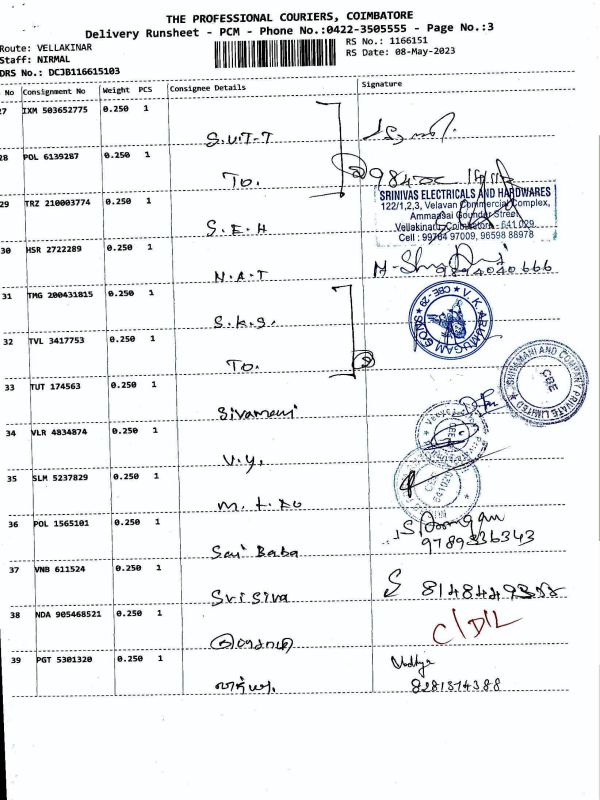 THE PROFESSIONAL COURIERS, COIMBATORE
Delivery Runsheet - PCM - Phone No.:0422-3505555 - Page No.:3
Route: VELLAKINAR
RS No.: 1166151
Staff: NIRMAL
RS Date: 08-May-2023
DRS No.: DCJB116615103
No Consignment No Weight PCS Consignee Details Signature
27 IXM 503652775 0.250 1
S.U.T.T
28 POL 6139287 0.250 1
To.
29 TRZ 210003774 0.250 1
SRINIVAS ELECTRICALS AND HARDWARES
122/1,2,3, Velavan Commercial Complex,
Ammasai Goundar Street
Vellakinar, Coimbatore - 641 029
Cell : 99764 97009, 96598 88978
S.E.H
30 HSR 2722289 0.250 1
N.A.T
31 TMG 200431815 0.250 1
S.K.S.
32 TVL 3417753 0.250 1
To.
33 TUT 174563 0.250 1
SHIVAMANI AND COMPANY PRIVATE LIMITED
CBE
Sivamani
34 VLR 4834874 0.250 1
V.Y.
35 SLM 5237829 0.250 1
36 POL 1565101 0.250 1
Sai Baba
9789336343
37 VNB 611524 0.250 1
Sri Siva
38 NDA 905468521 0.250 1
C/D/L
39 PGT 5301320 0.250 1
8281374388